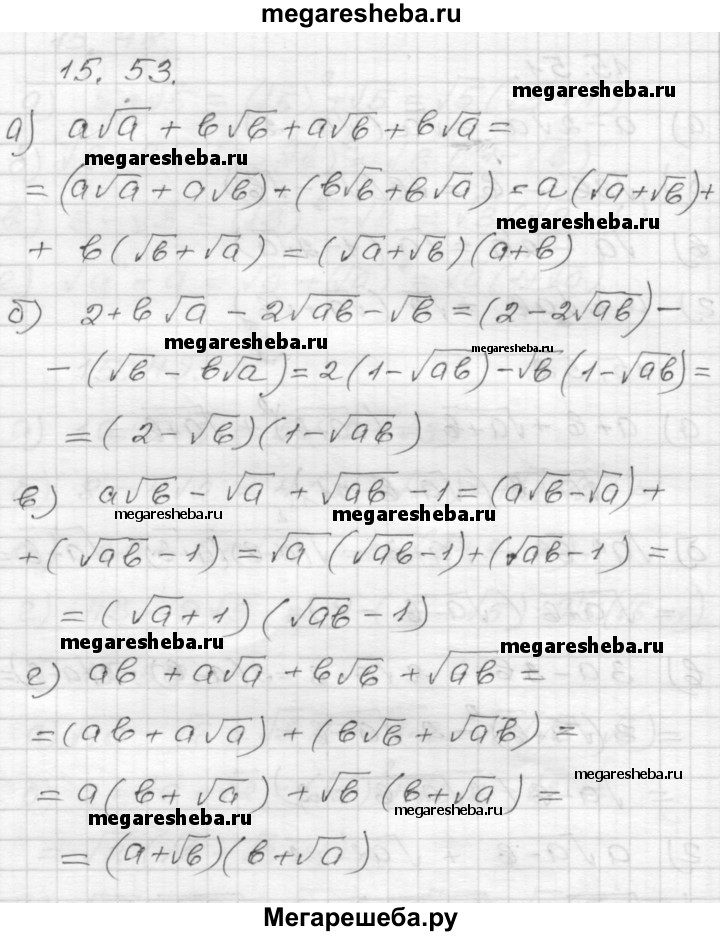 megaresheba.ru
15. 53.
megaresheba.ru
а) a√a + b√b + a√b + b√a =
megaresheba.ru
= (a√a + a√b) + (b√b + b√a) = a(√a + √b) +
megaresheba.ru
+ b(√b + √a) = (√a + √b)(a + b)
б) 2 + b√a − 2√ab − √b = (2 − 2√ab) −
megaresheba.ru
megaresheba.ru
− (√b − b√a) = 2(1 − √ab) − √b(1 − √ab) =
= (2 − √b)(1 − √ab)
в) a√b − √a + √ab − 1 = (a√b − √a) +
megaresheba.ru
megaresheba.ru
+ (√ab − 1) = √a(√ab − 1) + (√ab − 1) =
= (√a + 1)(√ab − 1)
megaresheba.ru
megaresheba.ru
г) ab + a√a + b√b + √ab =
= (ab + a√a) + (b√b + √ab) =
megaresheba.ru
= a(b + √a) + √b(b + √a) =
megaresheba.ru
megaresheba.ru
= (a + √b)(b + √a)
Мегарешеба.ру